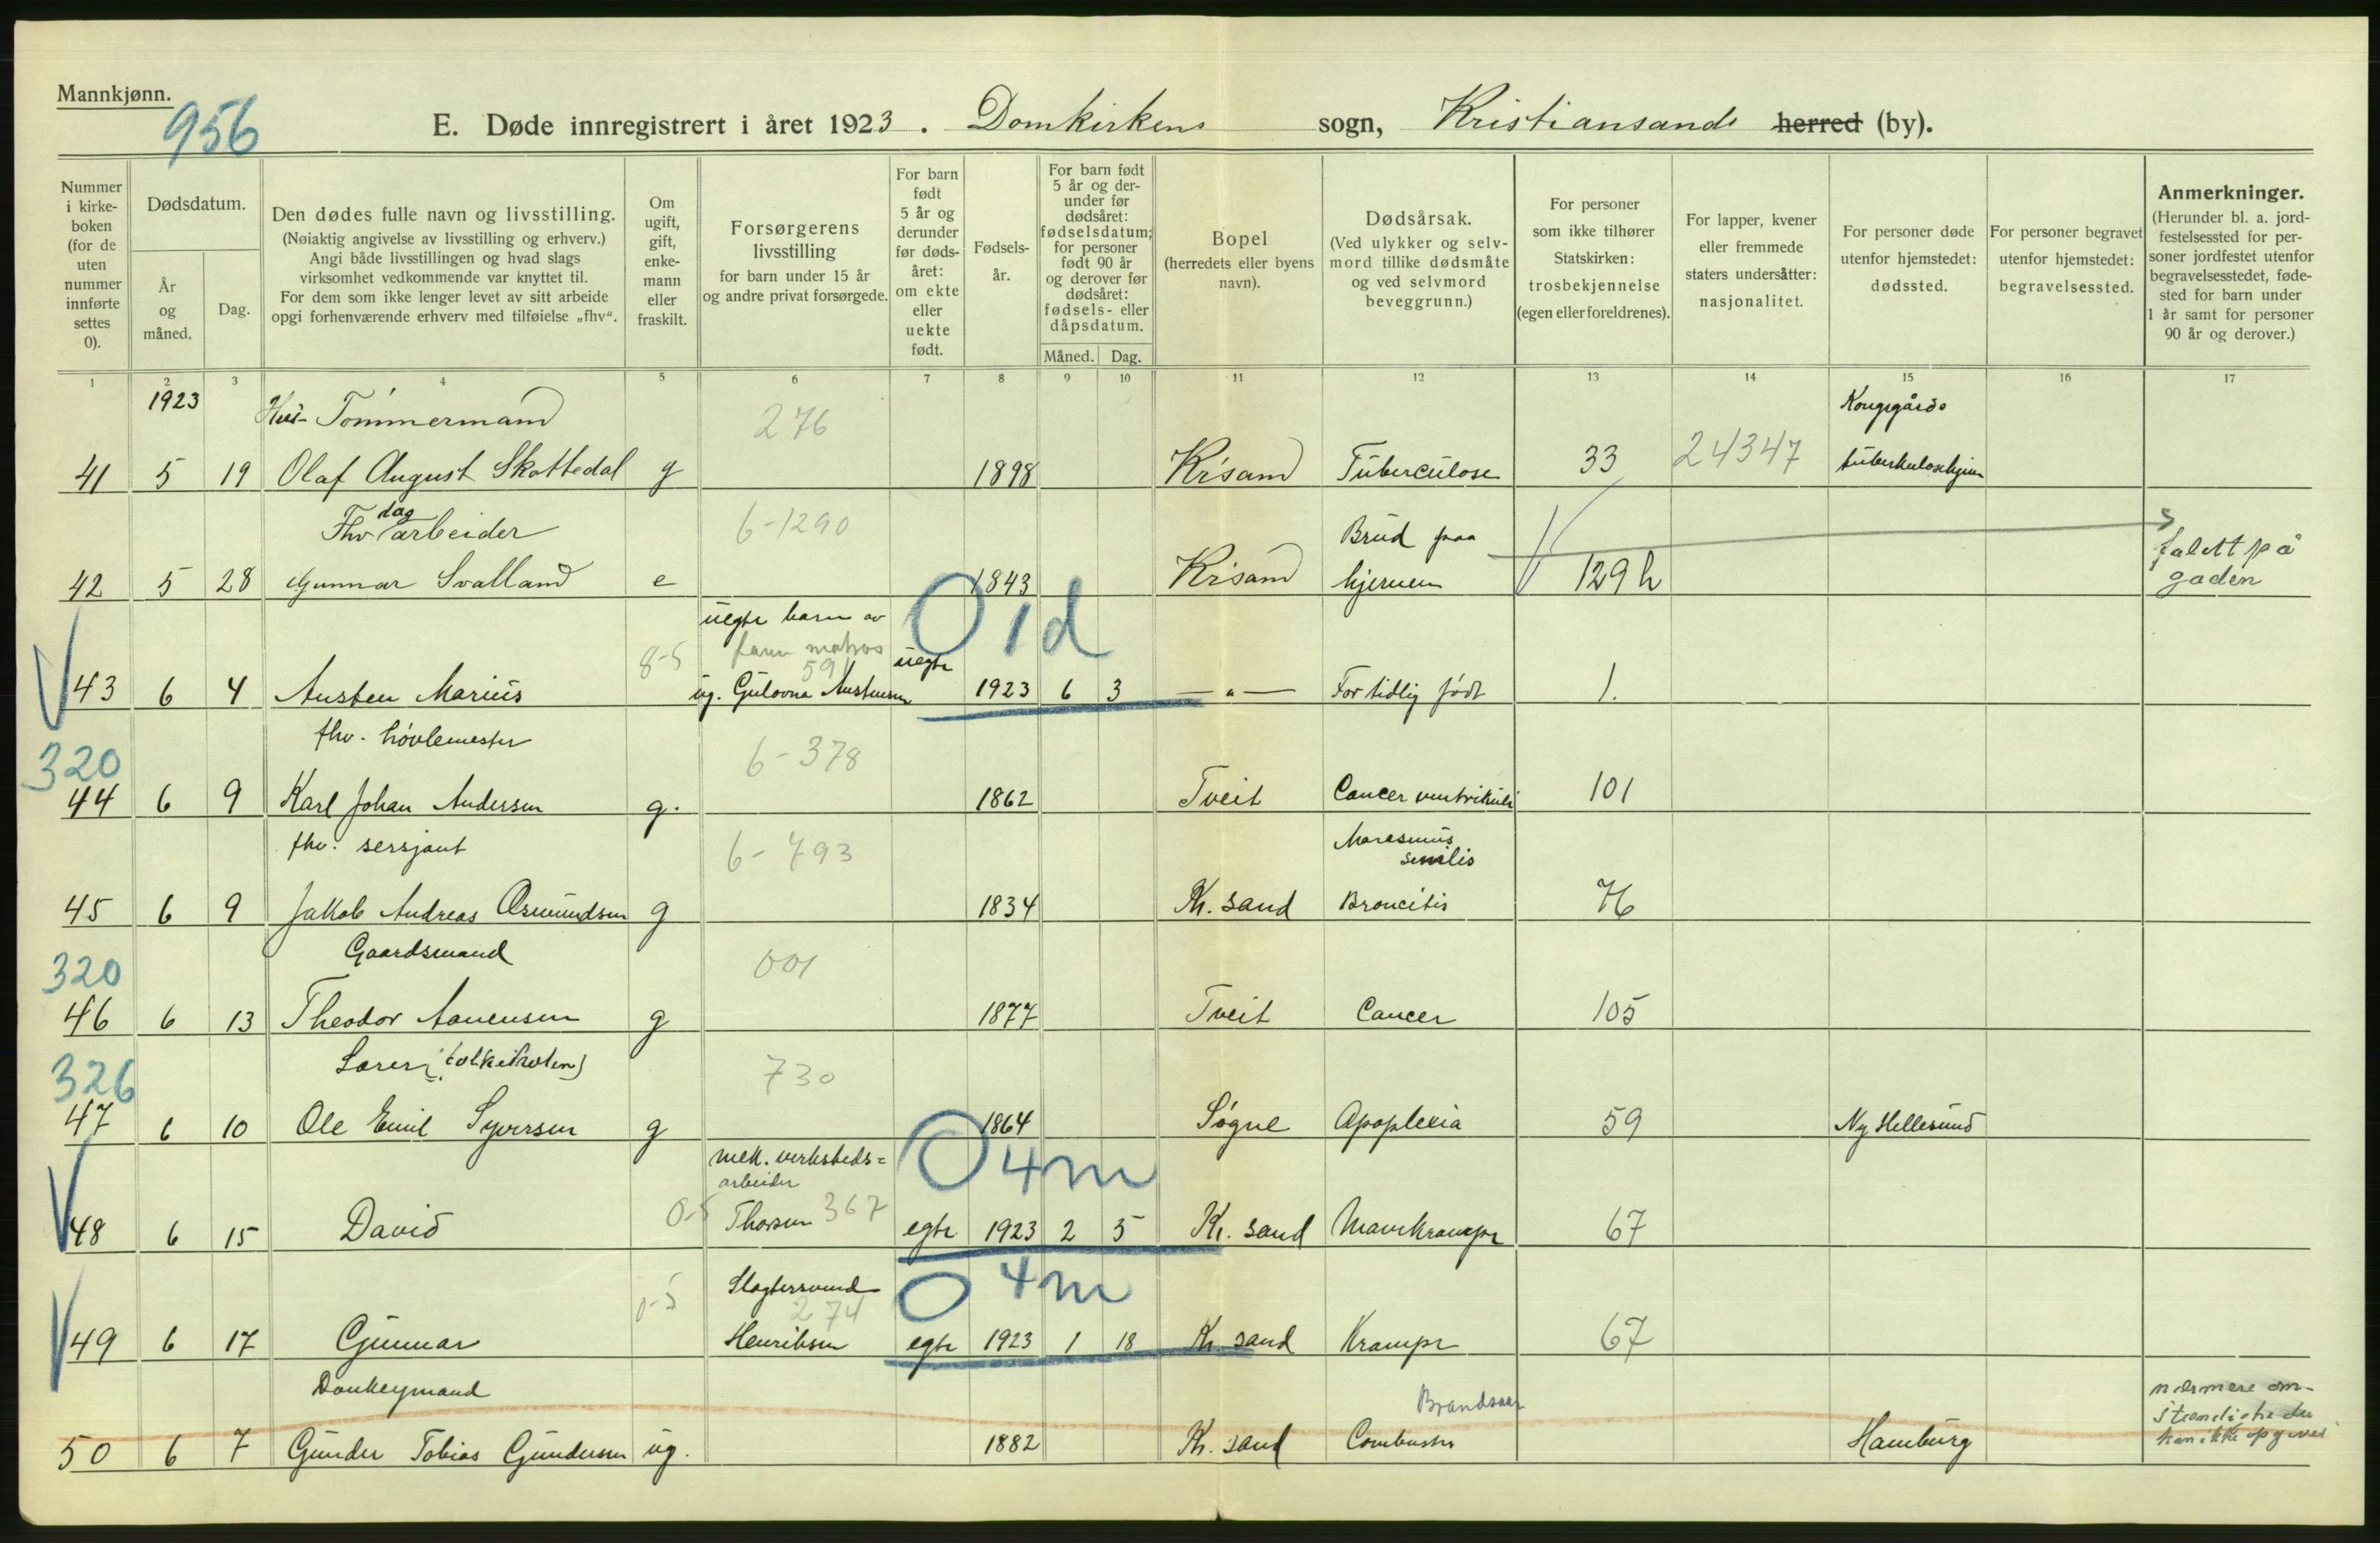 Mannkjønn.
956
E. Døde innregistrert i året 1923. Domkirkens sogn, Kristiansands herred (by).
Nummer i kirkeboken (for de uten nummer innførte settes 0).
Dødsdatum.
År og måned.
Dag.
Den dødes fulle navn og livsstilling.
(Nøiaktig angivelse av livsstilling og erhverv.)
Angi både livsstillingen og hvad slags
virksomhet vedkommende var knyttet til.
For dem som ikke lenger levet av sitt arbeide
opgi forhenværende erhverv med tilføielse „fhv“.
Om ugift, gift, enkemann eller fraskilt.
Forsørgerens livsstilling
for barn under 15 år
og andre privat forsørgede.
For barn født 5 år og derunder før dødsåret: om ekte eller uekte født.
Fødselsår.
For barn født 5 år og derunder før dødsåret: fødselsdatum; for personer født 90 år og derover før dødsåret: fødsels- eller dåpsdatum.
Måned. Dag.
Bopel
(herredets eller byens navn).
Dødsårsak.
(Ved ulykker og selvmord tillike dødsmåte og ved selvmord beveggrunn.)
For personer som ikke tilhører Statskirken: trosbekjennelse (egen eller foreldrenes).
For lapper, kvener eller fremmede staters undersåtter: nasjonalitet.
For personer døde utenfor hjemstedet: dødssted.
For personer begravet utenfor hjemstedet: begravelsessted.
Anmerkninger.
(Herunder bl. a. jordfestelsessted for personer jordfestet utenfor begravelsesstedet, fødested for barn under 1 år samt for personer 90 år og derover.)
1 2 3 4 5 6 7 8 9 10 11 12 13 14 15 16 17
1923 Tömmermand 276 Kongsgårds
41 5 19 Olaf August Skottedal g 1898 Kr'sand Tüberculose 33 24347 tüberkulosehjem
Fhv dag arbeider 6-1290 Brüd paa
42 5 28 Gunnar Svalland e 1843 Kr'sand hjernen 129 h falett på gaden
uegte barn av O 1d
8-5 farm matros 591 uegte
43 6 4 Austen Marius ug. Gulovna Austensen 1923 6 3 — " — For tidlig født 1.
320 fhv. hövlemester 6-378
44 6 9 Karl Johan Andersen g. 1862 Tveit Cancer ventrikuli 101
fhv. sersjant 6-793 Marasmus senilis
45 6 9 Jakob Andreas Osmundsen g 1834 Kr. sand Broncitis 76
320 Gaardsmand 001
46 6 13 Theodor Aanensen g 1877 Tveit Cancer 105
326 Lærer (folkeskolen) 730
47 6 10 Ole Emil Syversen g 1864 Søgne Apoplexia 59 Ny Hellesund
mek. verksteds= O 4m
arbeider
48 6 15 David 0-5 Thorsen 367 egte 1923 2 5 Kr. sand Mavekrampe 67
Slagtersvend O 4m
0-5 274
49 6 17 Gunnar Henriksen egte 1923 1 18 Kr. sand Krampe 67
Donkeymand Brandsaar nærmere om-
stændigheder
kan ikke opgives
50 6 7 Gunder Tobias Gundersen ug. 1882 Kr. sand Combustio Hamburg